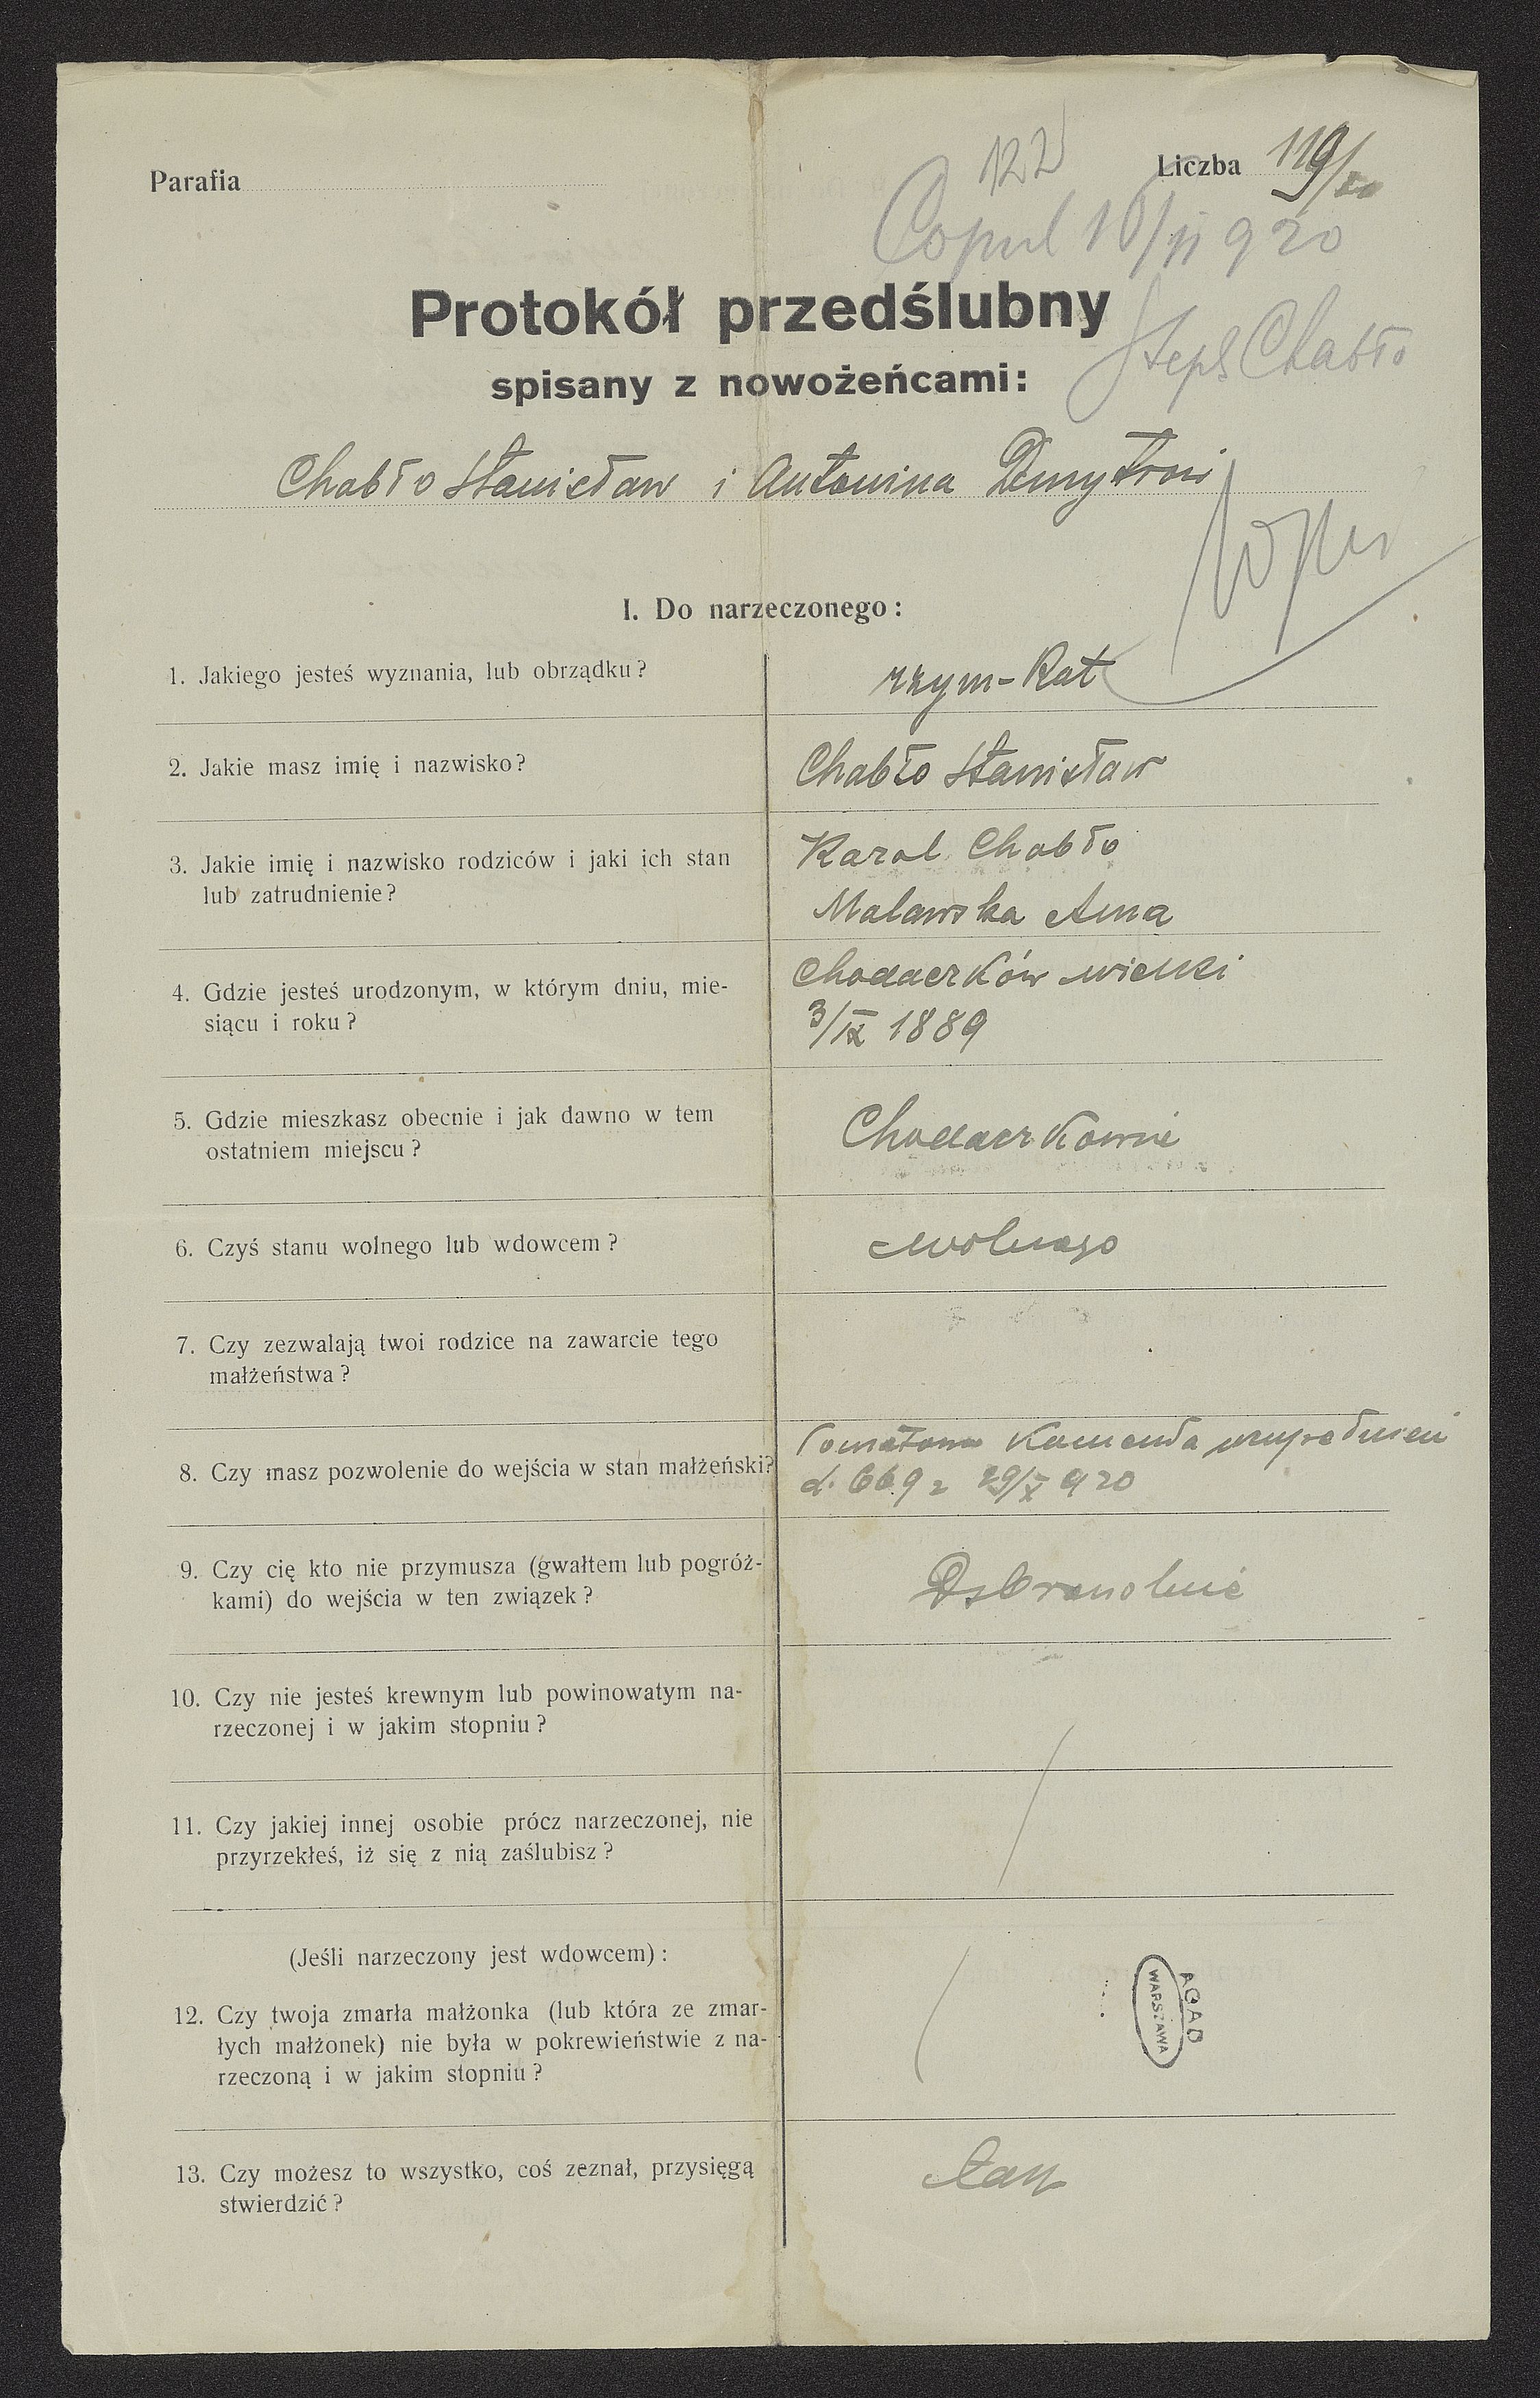 Parafia
122
Liczba 119/20
Copul 10/11 920
Protokół przedślubny
Steps Chabło
spisany z nowożeńcami:
Chabło Stanisław i Antonina Dmytrow
I. Do narzeczonego:
1. Jakiego jesteś wyznania, lub obrządku?
rzym-Kat
2. Jakie masz imię i nazwisko?
Chabło Stanisław
3. Jakie imię i nazwisko rodziców i jaki ich stan
lub zatrudnienie?
Karol Chabło
Malawska Anna
4. Gdzie jesteś urodzonym, w którym dniu, mie-
siącu i roku?
Chodaczków wielki
3/IX 1889
5. Gdzie mieszkasz obecnie i jak dawno w tem
ostatniem miejscu?
Chodaczkowie
6. Czyś stanu wolnego lub wdowcem?
wolnego
7. Czy zezwalają twoi rodzice na zawarcie tego
małżeństwa?
8. Czy masz pozwolenie do wejścia w stan małżeński?
Komenda
669 z 29/X 920
9. Czy cię kto nie przymusza (gwałtem lub pogróż-
kami) do wejścia w ten związek?
Dobrowolnie
10. Czy nie jesteś krewnym lub powinowatym na-
rzeczonej i w jakim stopniu?
11. Czy jakiej innej osobie prócz narzeczonej, nie
przyrzekłeś, iż się z nią zaślubisz?
(Jeśli narzeczony jest wdowcem):
12. Czy twoja zmarła małżonka (lub która ze zmar-
łych małżonek) nie była w pokrewieństwie z na-
rzeczoną i w jakim stopniu?
AGAD
WARSZAWA
13. Czy możesz to wszystko, coś zeznał, przysięgą
stwierdzić?